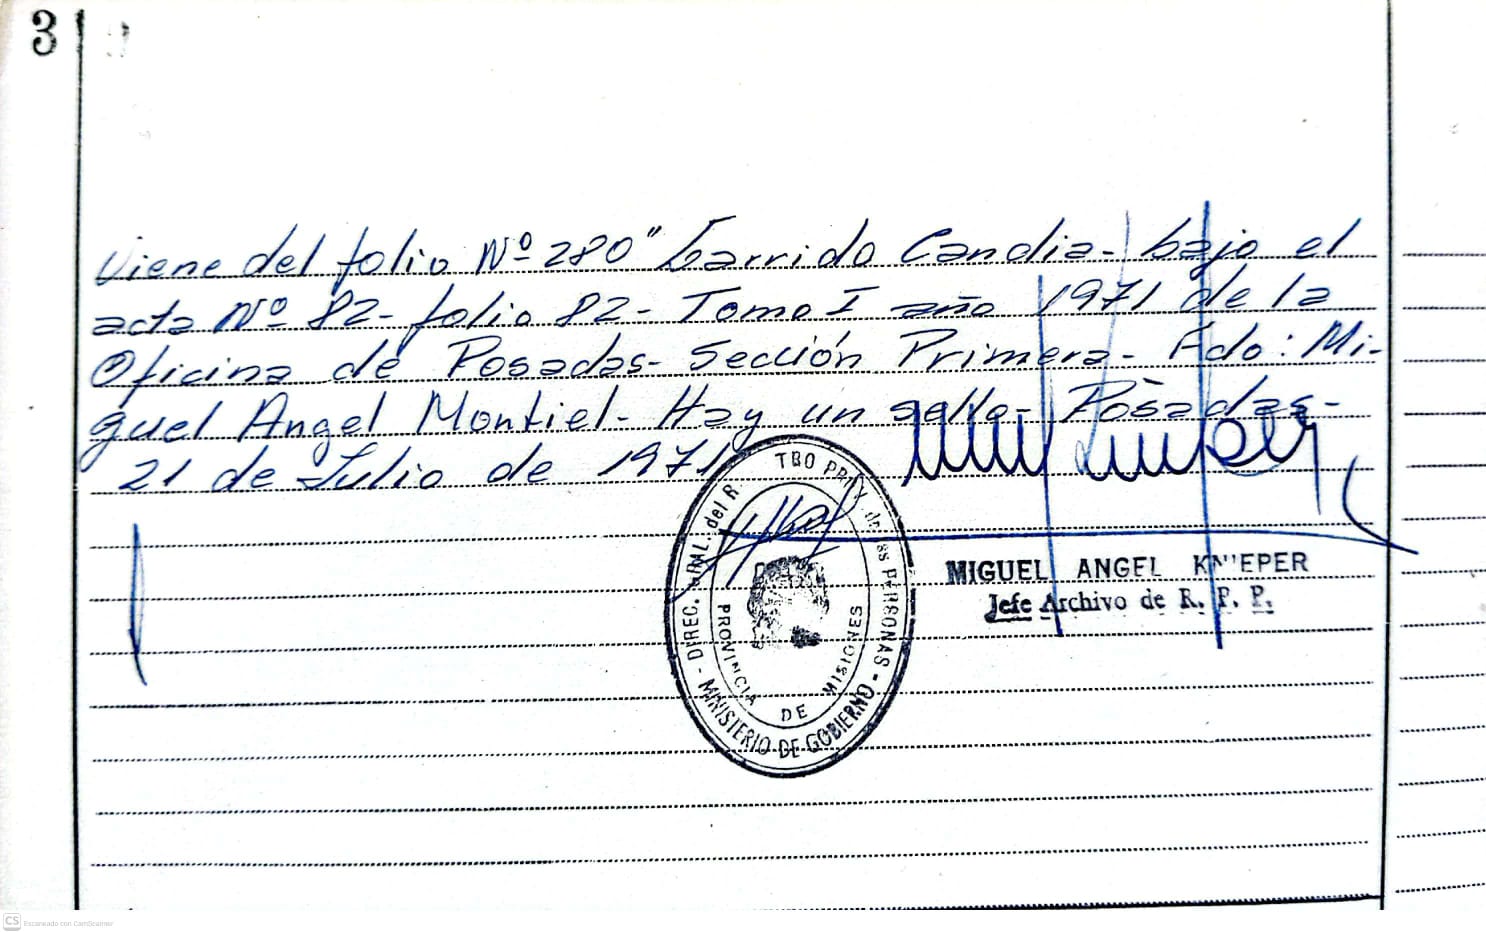 3
Viene del folio Nº 280" Garrido Candia- bajo el
acta Nº 82- folio 82- Tomo I año 1971 de la
Oficina de Posadas- Sección Primera- Fdo: Mi-
guel Angel Montiel- Hay un sello- Posadas-
21 de Julio de 1971
DIREC. GRAL. del R. TRO PR. de las PERSONAS - MINISTERIO DE GOBIERNO -
PROVINCIA DE MISIONES
MIGUEL ANGEL KNIEPER
Jefe Archivo de R. P. P.
CS Escaneado con CamScanner